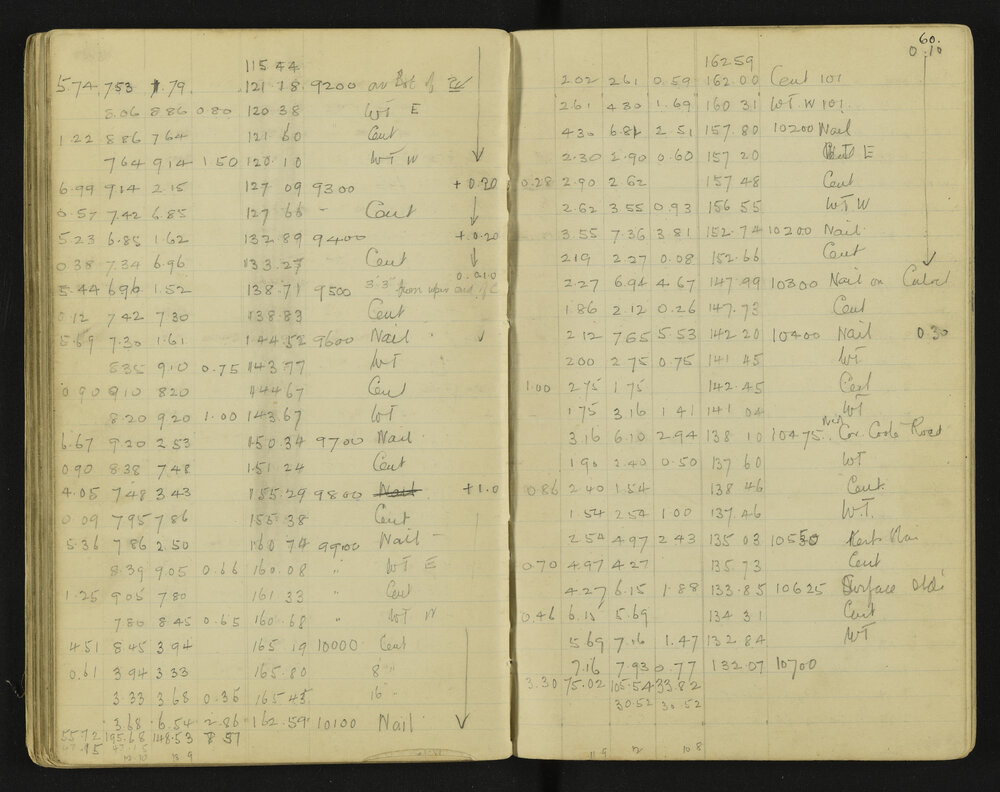 115 44
5.74 7 53 1.79 121 18 9200
5.06 8 86 0 80 120 38 WT E
1.22 8 86 7 64 121 60 Cent
7 64 9 14 1 50 120 10 WT W
6.99 9 14 2 15 127 09 9300 + 0.20
0.57 7.42 6.85 127 66 " Cent
5.23 6.85 1.62 132.89 9400 + 0.20
0.38 7.34 6.96 133.27 Cent
0.010
5.44 6.96 1.52 138.71 9500 3'3" from
0.12 7 42 7 30 138.83 Cent
5.69 7.30 1.61 144.52 9600 Nail
8.35 9 10 0.75 143.77 WT
0 90 9 10 8 20 144 67 Cent
8 20 9 20 1.00 143.67 WT
6.67 9 20 2 53 150.34 9700 Nail
0 90 8 38 7 48 151 24 Cent
4.05 7 48 3 43 155.29 9800 Nail + 1.0
0.09 7 95 7 86 155.38 Cent
5.36 7 86 2.50 160 74 9900 Nail -
8.39 9.05 0.66 160.08 " WT E
1.25 9 05 7 80 161 33 " Cent
7 80 8 45 0.65 160.68 " WT W
4 51 8 45 3 94 165 19 10000 Cent
0.61 3 94 3 33 165.80 8 "
3.33 3 68 0.35 165 45 16 "
3.68 6.54 2.86 162.59 10100 Nail
55 72 195.68 148.53 8 57
47.15 47.15
12 10 13 9
60.
0.10
162 59
2 02 2 61 0.59 162 00 Cent 101
2 61 4 30 1.69 160 31 WT W 101
4 30 6.81 2 51 157.80 10200 Nail
2.30 2.90 0.60 157 20 E
0.28 2.90 2.62 157 48 Cent
2.62 3.55 0.93 156 55 WT W
3.55 7.36 3.81 152.74 10200 Nail
2 19 2.27 0.08 152.66 Cent
2.27 6.94 4.67 147.99 10300 Nail on
1.86 2.12 0.26 147.73 Cent
2 12 7 65 5.53 142 20 10400 Nail 0.30
2 00 2 75 0.75 141 45 WT
1.00 2.75 1 75 142.45 Cent
1 75 3 16 1 41 141 04 WT
3 16 6 10 2.94 138 10 10475 Cor. Road
1 90 2.40 0.50 137 60 WT
0.86 2 40 1.54 138 46 Cent.
1.54 2 54 1 00 137.46 W.T.
2.54 4 97 2 43 135 03 10550
0.70 4.97 4 27 135.73 Cent
4 27 6.15 1.88 133.85 10625 Surface
0.46 6.15 5.69 134 31 Cent
5 69 7.16 1.47 132 84 WT
7.16 7.93 0.77 132.07 10700
3.30 75.02 105.54 33.82
30.52 30.52
11 9 12 10 8